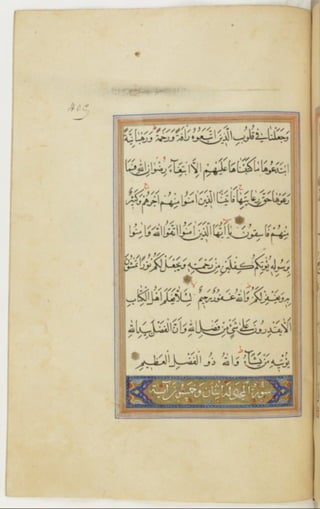 وجعلنا في قلوب الذين اتبعوه رأفة ورحمة ورهبانية
ابتدعوها ما كتبناها عليهم إلا ابتغاء رضوان الله فما
رعوها حق رعايتها فآتينا الذين آمنوا منهم أجرهم وكثير
منهم فاسقون يا أيها الذين آمنوا اتقوا الله وآمنوا
برسوله يؤتكم كفلين من رحمته ويجعل لكم نورا تمشون
به ويغفر لكم والله غفور رحيم لئلا يعلم أهل الكتاب
ألا يقدرون على شيء من فضل الله وأن الفضل بيد الله
يؤتيه من يشاء والله ذو الفضل العظيم
سورة المجادلة اثنتان وعشرون آية